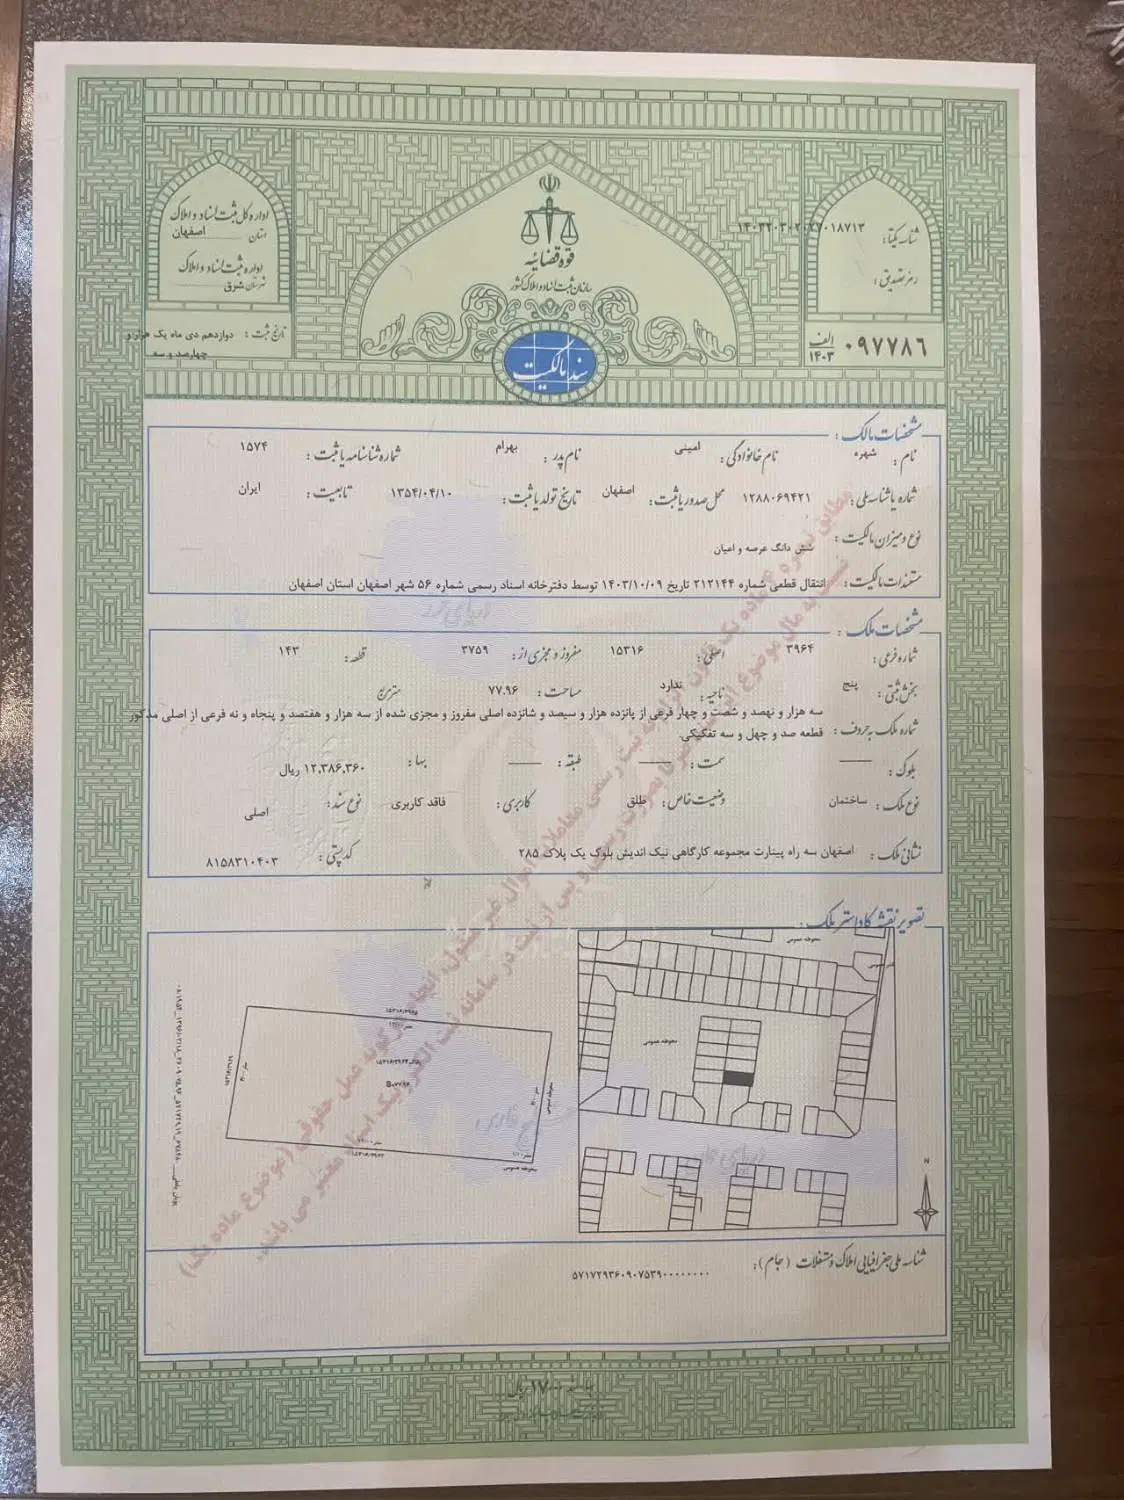 قوه قضائیه
سازمان ثبت اسناد و املاک کشور
سند مالکیت
شناسه یکتا:
رمز تصدیق:
الف
۱۴۰۳
۰۹۷۷۸۶
اداره کل ثبت اسناد و املاک
استان اصفهان
اداره ثبت اسناد و املاک
شهرستان شرق
تاریخ ثبت: دوازدهم دی ماه یک هزار و
چهارصد و سه
مشخصات مالک:
نام: شهره نام خانوادگی: امینی نام پدر: بهرام شماره شناسنامه یا ثبت: ۱۵۷۴
شماره یا شناسه ملی: ۱۲۸۸۰۶۹۴۲۱ محل صدور یا ثبت: اصفهان تاریخ تولد یا ثبت: ۱۳۵۴/۰۴/۱۰ تابعیت: ایران
نوع و میزان مالکیت: شش دانگ عرصه و اعیان
مستندات مالکیت: انتقال قطعی شماره ۲۱۲۱۴۴ تاریخ ۱۴۰۳/۱۰/۰۹ توسط دفترخانه اسناد رسمی شماره ۵۶ شهر اصفهان استان اصفهان
مشخصات ملک:
شماره فرعی: ۳۹۶۴ اصلی: ۱۵۳۱۶ مفروز و مجزی از: ۳۷۵۹ قطعه: ۱۴۳
بخش ثبتی: پنج ناحیه: ندارد مساحت: ۷۷.۹۶ متر مربع
شماره ملک به حروف: سه هزار و نهصد و شصت و چهار فرعی از پانزده هزار و سیصد و شانزده اصلی مفروز و مجزی شده از سه هزار و هفتصد و پنجاه و نه فرعی از اصلی مذکور
قطعه صد و چهل و سه تفکیکی.
بلوک: —— سمت: —— طبقه: —— بها: ۱۲,۳۸۶,۳۶۰ ریال
نوع ملک: ساختمان وضعیت خاص: طلق کاربری: فاقد کاربری نوع سند: اصلی
نشانی ملک: اصفهان سه راه پینارت مجموعه کارگاهی نیک اندیش بلوک یک پلاک ۲۸۵ کد پستی: ۸۱۵۸۳۱۰۴۰۳
تصویر نقشه کاداستر ملک:
محوطه عمومی
محوطه عمومی
محوطه عمومی
محوطه عمومی
N
شناسه ملی جغرافیایی املاک و مستغلات (جام): ۵۷۱۷۲۹۳۶۰۹۰۷۵۳۹۰۰۰۰۰۰۰۰